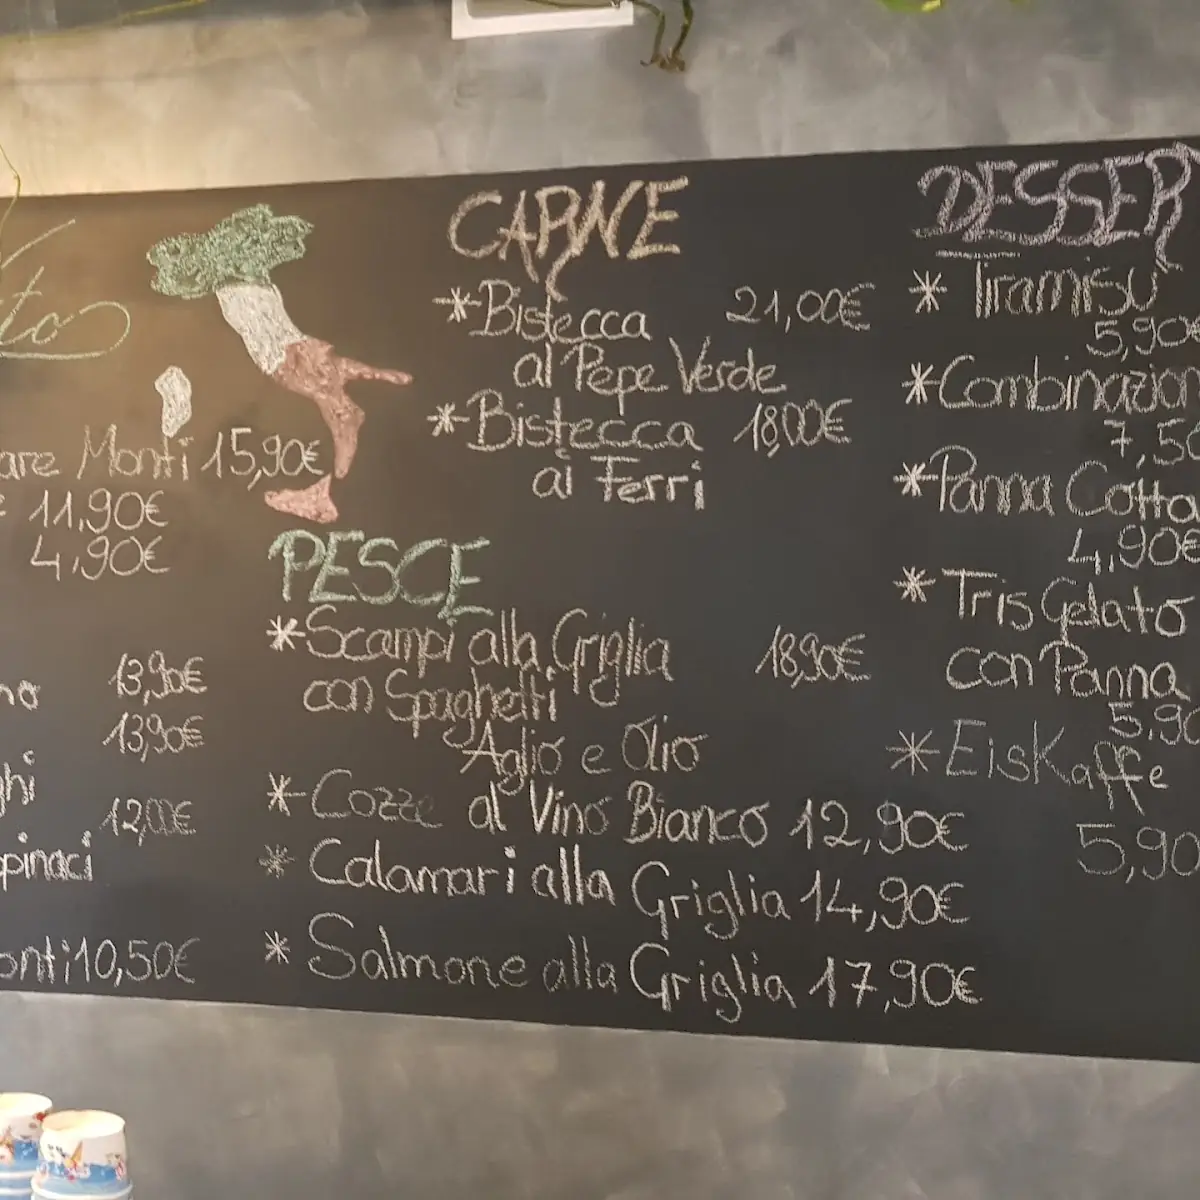 are Monti 15,90€
11,90€
4,90€
13,90€
no
13,90€
ghi
12,00€
pinaci
onti 10,50€
CARNE
*Bistecca 21,00€
al Pepe Verde
*Bistecca 18,00€
ai Ferri
PESCE
*Scampi alla Griglia 18,90€
con Spaghetti
Aglio e Olio
*Cozze al Vino Bianco 12,90€
*Calamari alla Griglia 14,90€
*Salmone alla Griglia 17,90€
DESSER
*Tiramisù
5,90€
*Combinazion
7,50
*Panna Cotta
4,90€
*Tris Gelato
con Panna
5,90
*EisKaffe
5,90